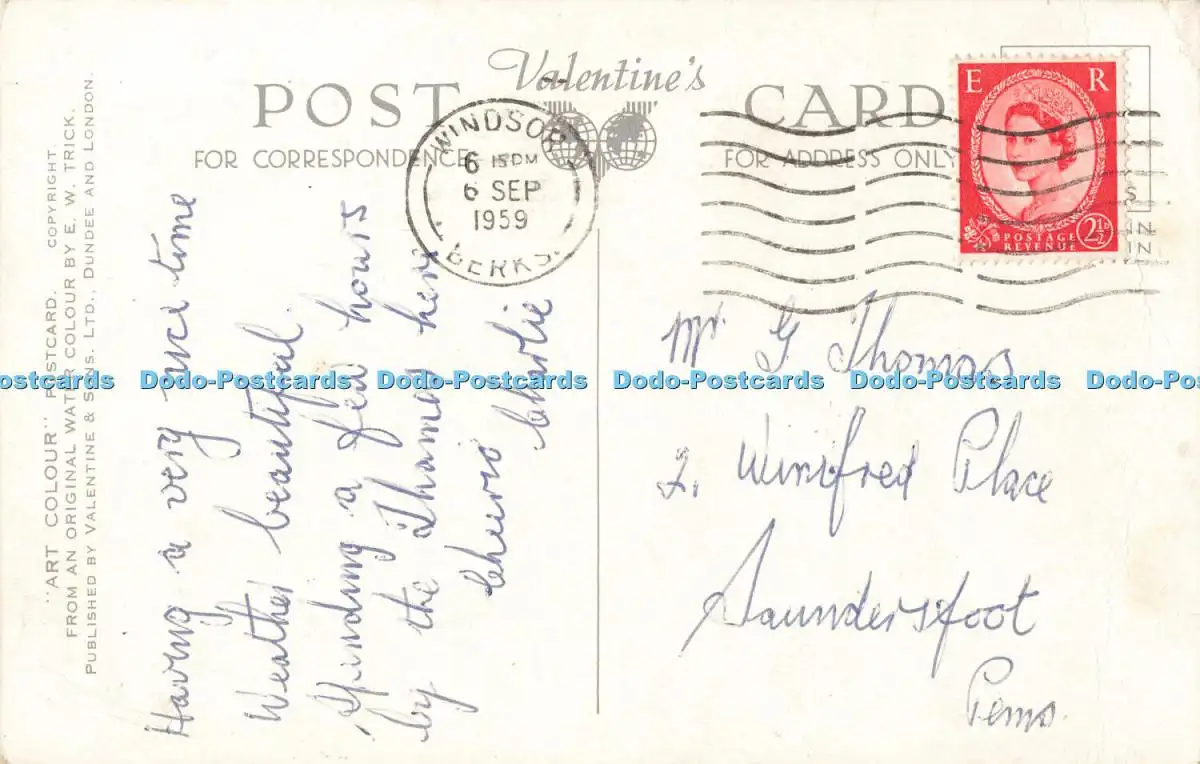 Valentine's
POST CARD
FOR CORRESPONDENCE
FOR ADDRESS ONLY
WINDSOR
6 15PM
6 SEP
1959
BERKS.
E R
POSTAGE
REVENUE
2½D
S
IN
IN
"ART COLOUR" POSTCARD. COPYRIGHT
FROM AN ORIGINAL WATER COLOUR BY E. W. TRICK.
PUBLISHED BY VALENTINE & SONS. LTD., DUNDEE AND LONDON.
Having a very nice time
Weather beautiful.
Spending a few hours
by the Thames here
Cheerio Charlie
Mr. G Thomas
2, Winifred Place
Saundersfoot
Pems.
Dodo-Postcards Dodo-Postcards Dodo-Postcards Dodo-Postcards Dodo-Postcards Dodo-Postcards